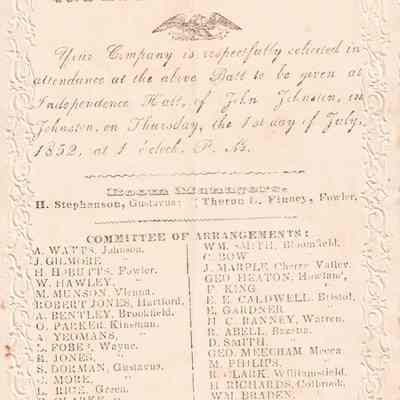 Your Company is respectfully solicited in
attendance at the above Ball to be given at
Independence Hall, of John Johnston, in
Johnston, on Thursday, the 1st day of July,
1852, at 1 o'clock, P. M.
Room Managers.
H. Stephenson, Gustavus: Theron L. Finney, Fowler.
COMMITTEE OF ARRANGEMENTS:
A. WATTS, Johnson.
J. GILMORE, "
H. ROBERTS, Fowler.
W. HAWLEY, "
M. MUNSON, Vienna.
ROBERT JONES, Hartford.
A. BENTLEY, Brookfield.
O. PARKER, Kinsman.
A. YEOMANS, "
L. FOBES, Wayne.
E. JONES, "
S. DORMAN, Gustavus.
C. MORE, "
L. RICE, Green.
WM. SMITH, Bloomfield.
C. BOW
J. MARPLE, Cherry Valley.
GEO. HEATON, Howland,
P. KING "
E. E. CALDWELL, Bristol.
E. GARDNER "
H. C. RANNEY, Warren.
R. ABELL, Bazetta.
D. SMITH, "
GEO. MEECHAM, Mecca
M. PHILIPS, "
R. CLARK, Williamsfield.
H. RICHARDS, Colbrook,
WM. BRADEN,